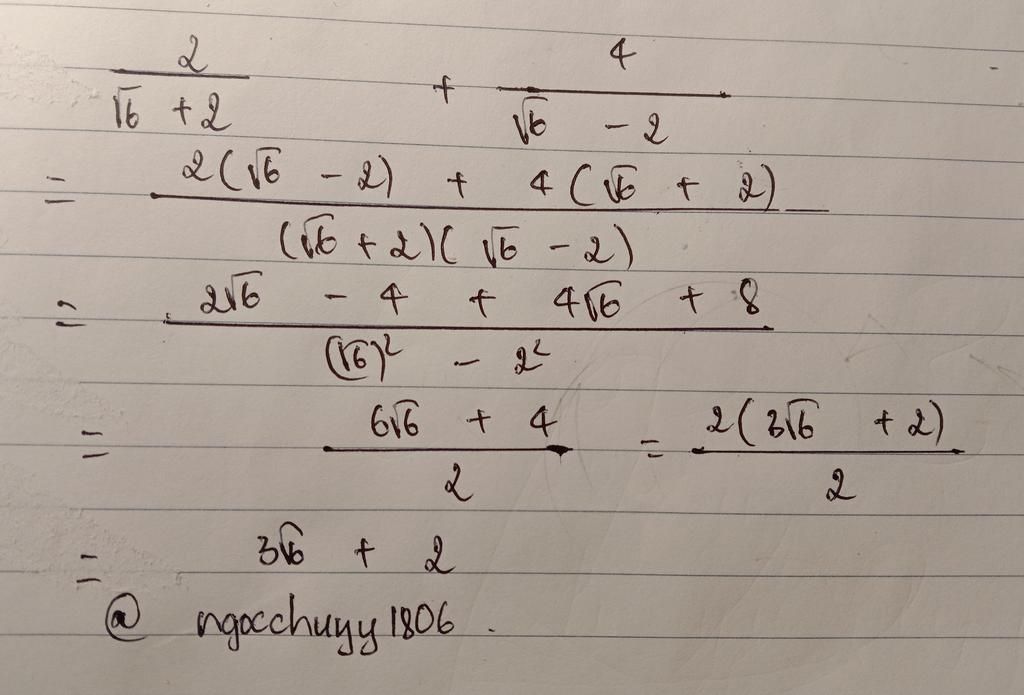 2/(√6 + 2) + 4/(√6 - 2)
= (2(√6 - 2) + 4(√6 + 2))/((√6 + 2)(√6 - 2))
= (2√6 - 4 + 4√6 + 8)/((√6)² - 2²)
= (6√6 + 4)/2 = (2(3√6 + 2))/2
= 3√6 + 2
@ ngocchuyy1806.